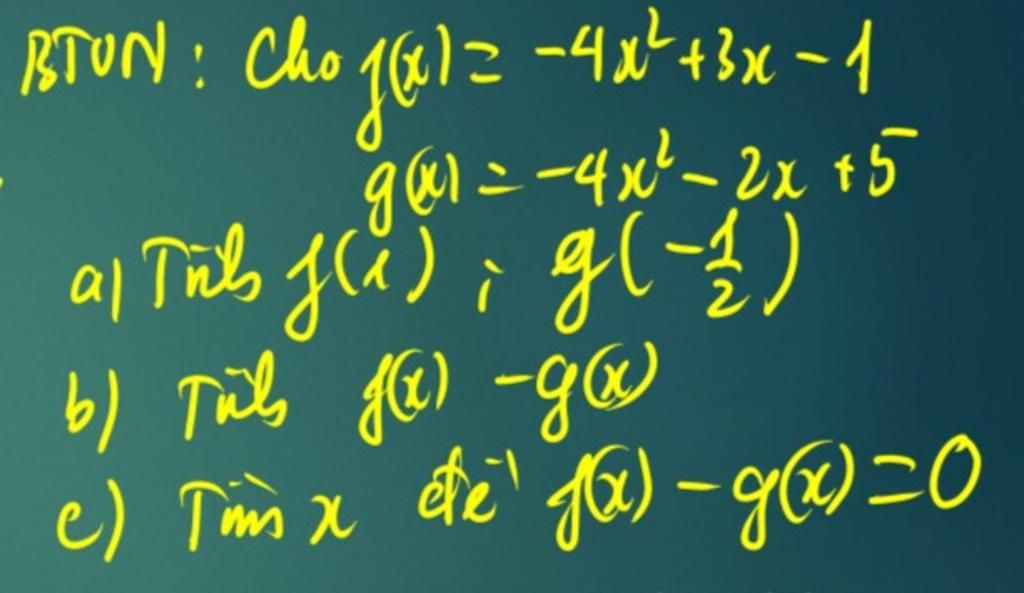 BTVN: Cho f(x) = -4x² + 3x - 1
g(x) = -4x² - 2x + 5
a) Tính f(1) ; g(-1/2)
b) Tính f(x) - g(x)
c) Tìm x để f(x) - g(x) = 0